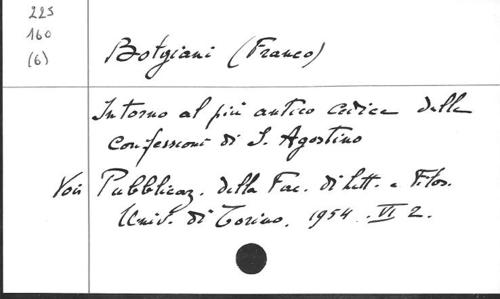 225
160
(6)
Bolgiani (Franco)
Intorno al più antico codice delle
confessioni di S. Agostino
Voir Pubblicaz. della Fac. di Lett. e Filos.
Univ. di Torino. 1954. VI 2.